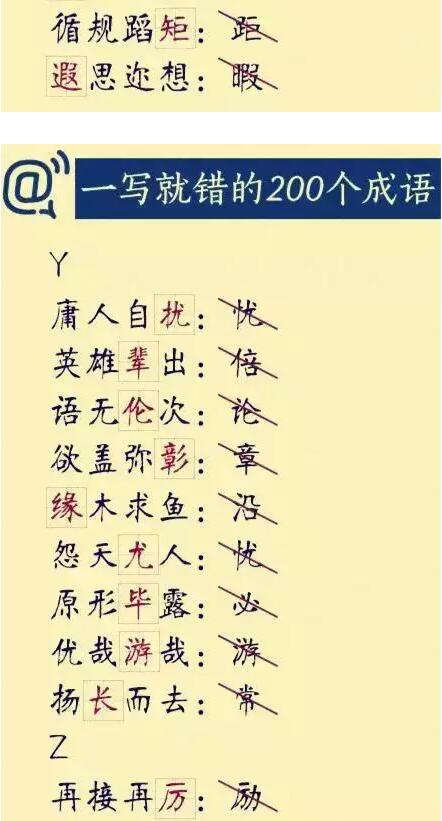 循规蹈矩：距
遐思迩想：暇
@一写就错的200个成语
Y
庸人自扰：忧
英雄辈出：倍
语无伦次：论
欲盖弥彰：章
缘木求鱼：沿
怨天尤人：忧
原形毕露：必
优哉游哉：游
扬长而去：常
Z
再接再厉：励